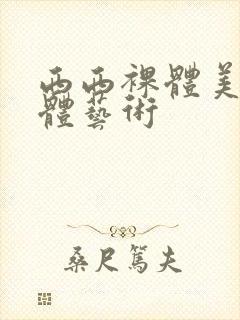 西西裸體美
體藝術
桑尺篤夫